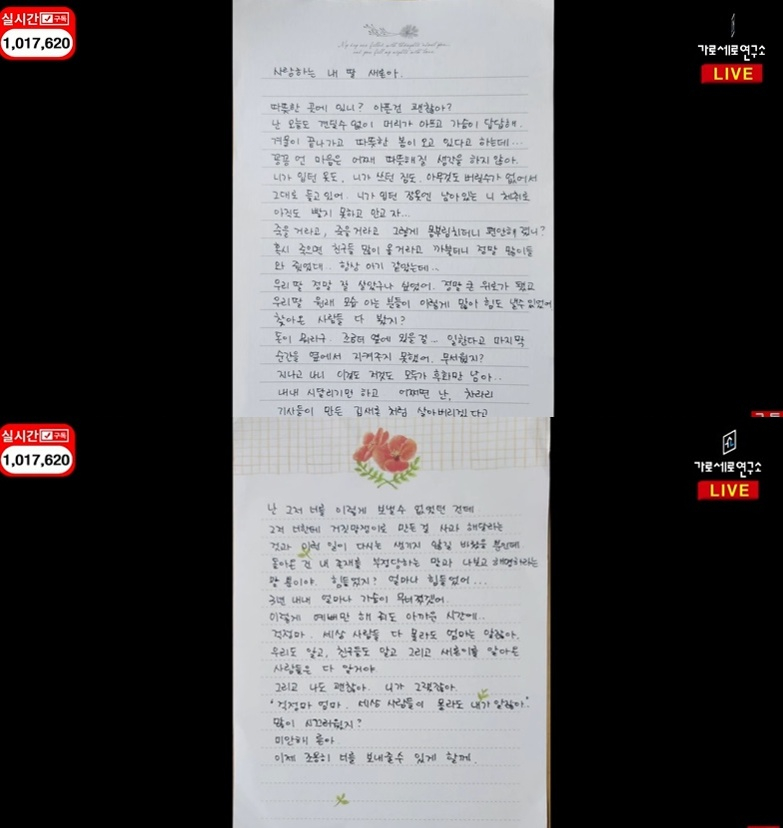 실시간 구독
1,017,620
가로세로연구소
LIVE
사랑하는 내 딸 새론아.
따뜻한 곳에 있니? 아픈건 괜찮아?
난 오늘도 견딜수 없이 머리가 아프고 가슴이 답답해.
겨울이 끝나가고 따뜻한 봄이 오고 있다고 하는데...
꽁꽁 언 마음은 어째 따뜻해질 생각을 하지 않아.
니가 입던 옷도, 니가 쓰던 짐도. 아무것도 버릴수가 없어서
그대로 들고있어. 니가 입던 잠옷엔 남아있는 니 체취로
아직도 빨지 못하고 안고 자...
죽을거라고, 죽을거라고 그렇게 몸부림치더니 편안해 졌니?
혹시 죽으면 친구들 많이 올거라고 까불더니 정말 많이들
와 줬었대.. 항상 아기 같았는데..
우리딸 정말 잘 살았구나 싶었어. 정말 큰 위로가 됐고
우리딸 원래 모습 아는 분들이 이렇게 많아 힘도 낼수 있었어
찾아온 사람들 다 봤지?
돈이 뭐라구. 조금더 옆에 있을걸... 일한다고 마지막
순간을 옆에서 지켜주지 못했어. 무서웠지?
지나고 나니 이것도 저것도 모두가 후회만 남아..
내내 시달리기만 하고 어쩌면 난, 차라리
기사들이 만든 김새론 처럼 살아버리겠다고
구독
실시간 구독
1,017,620
가로세로연구소
LIVE
난 그저 너를 이렇게 보낼수 없었던 건데
그저 너한테 거짓말쟁이로 만든걸 사과 해달라는
것과 이런 일이 다시는 생기지 않길 바랬을 뿐인데.
돌아온 건 내 존재를 부정당하는 말과 나보고 해명하라는
말 뿐이야. 힘들었지? 얼마나 힘들었어...
3년 내내 얼마나 가슴이 무너졌겠어.
이렇게 예뻐만 해 줘도 아까운 시간에..
걱정마. 세상 사람들 다 몰라도 엄마는 알잖아.
우리도 알고, 친구들도 알고 그리고 새론이를 알아온
사람들은 다 알거야.
그리고 나도 괜찮아. 니가 그랬잖아.
'걱정마 엄마. 세상 사람들이 몰라도 내가 알잖아.'
많이 시끄러웠지?
미안해 론아
이제 조용히 너를 보내줄수 있게 할께.